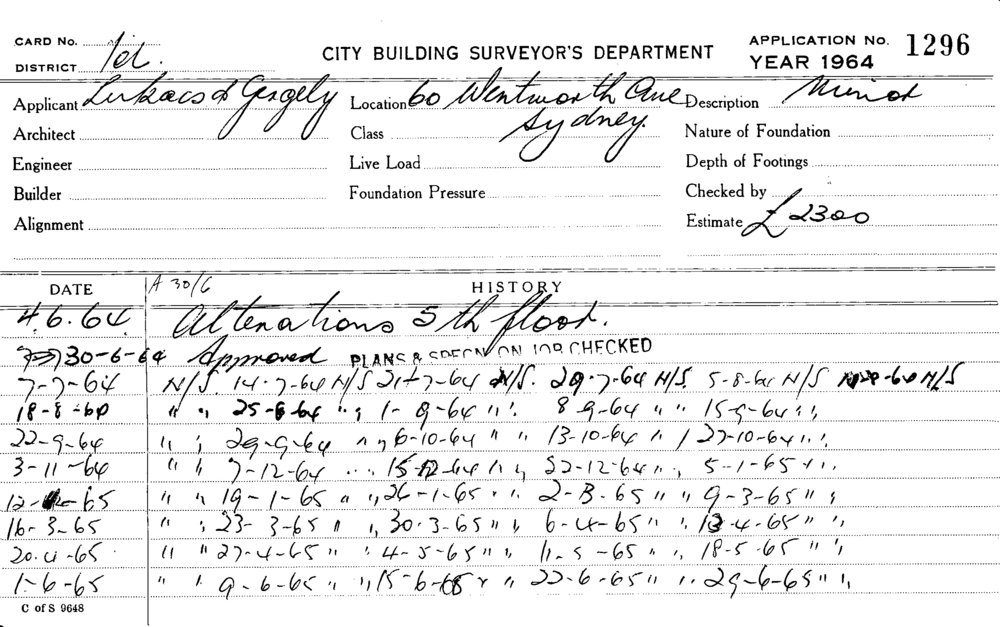 CARD No.
CITY BUILDING SURVEYOR'S DEPARTMENT
APPLICATION No. 1296
DISTRICT
YEAR 1964
Applicant Lukacs & Gergely
Location 60 Wentworth Ave Sydney.
Description Minor
Architect
Class
Nature of Foundation
Engineer
Live Load
Depth of Footings
Builder
Foundation Pressure
Checked by
Alignment
Estimate £2300
A 30/6
DATE HISTORY
4.6.64. Alterations 5th floor.
30-6-64 Approved PLANS & SPECN ON JOB CHECKED
7-7-64 N/S 14-7-64 N/S 21-7-64 N/S. 29-7-64 N/S 5-8-64 N/S N/S
18-8-60 " " 25-8-64 " " 1-9-64 " " 8-9-64 " " 15-9-64 " "
22-9-64 " " 29-9-64 " " 6-10-64 " " 13-10-64 " " 27-10-64 " "
3-11-64 " " 7-12-64 " " 15-12-64 " " 22-12-64 " " 5-1-65 " "
65 " " 19-1-65 " " 26-1-65 " " 2-3-65 " " 9-3-65 " "
16-3-65 " " 23-3-65 " " 30-3-65 " " 6-4-65 " " 13-4-65 " "
20-4-65 " " 27-4-65 " " 4-5-65 " " 11-5-65 " " 18-5-65 " "
1-6-65 " " 9-6-65 " " 15-6-65 " " 22-6-65 " " 29-6-65 " "
C of S 9648